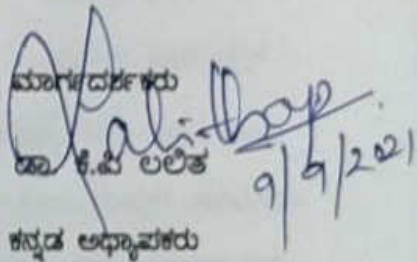 ಮಾರ್ಗದರ್ಶಕರು
Lalitha
ಡಾ. ಕೆ.ಪಿ ಲಲಿತ
9/9/2021
ಕನ್ನಡ ಅಧ್ಯಾಪಕರು